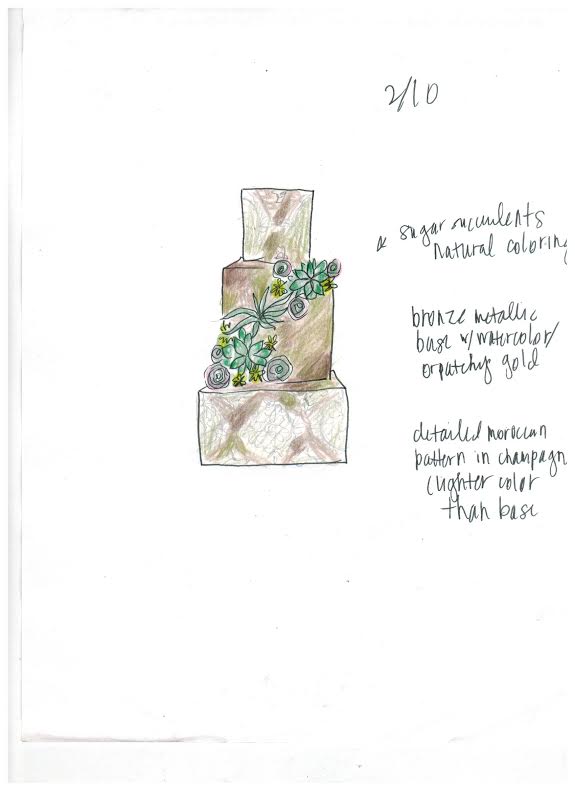 2/10
* sugar succulents
natural coloring
bronze metallic
base w/ watercolor/
or patchy gold
detailed moroccan
pattern in champagn
(lighter color
than base